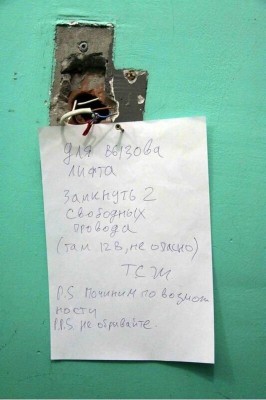 для вызова
лифта
Замкнуть 2
свободных
провода
(там 12В, не опасно)
ТСЖ
P.S. Починим по возмож
ности
P.P.S не обрывайте.